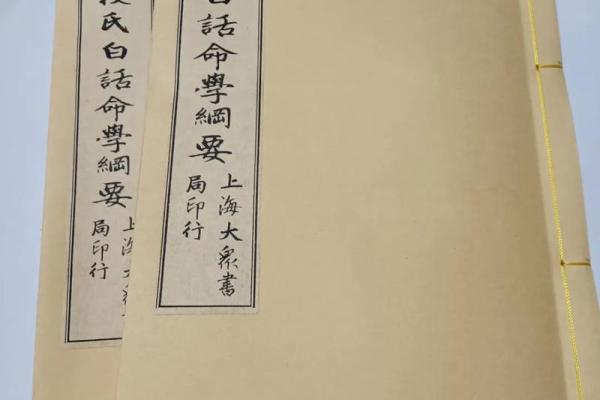 白話命學綱要
上海大眾書
局印行
段氏白話命學綱要
上海大
局印行